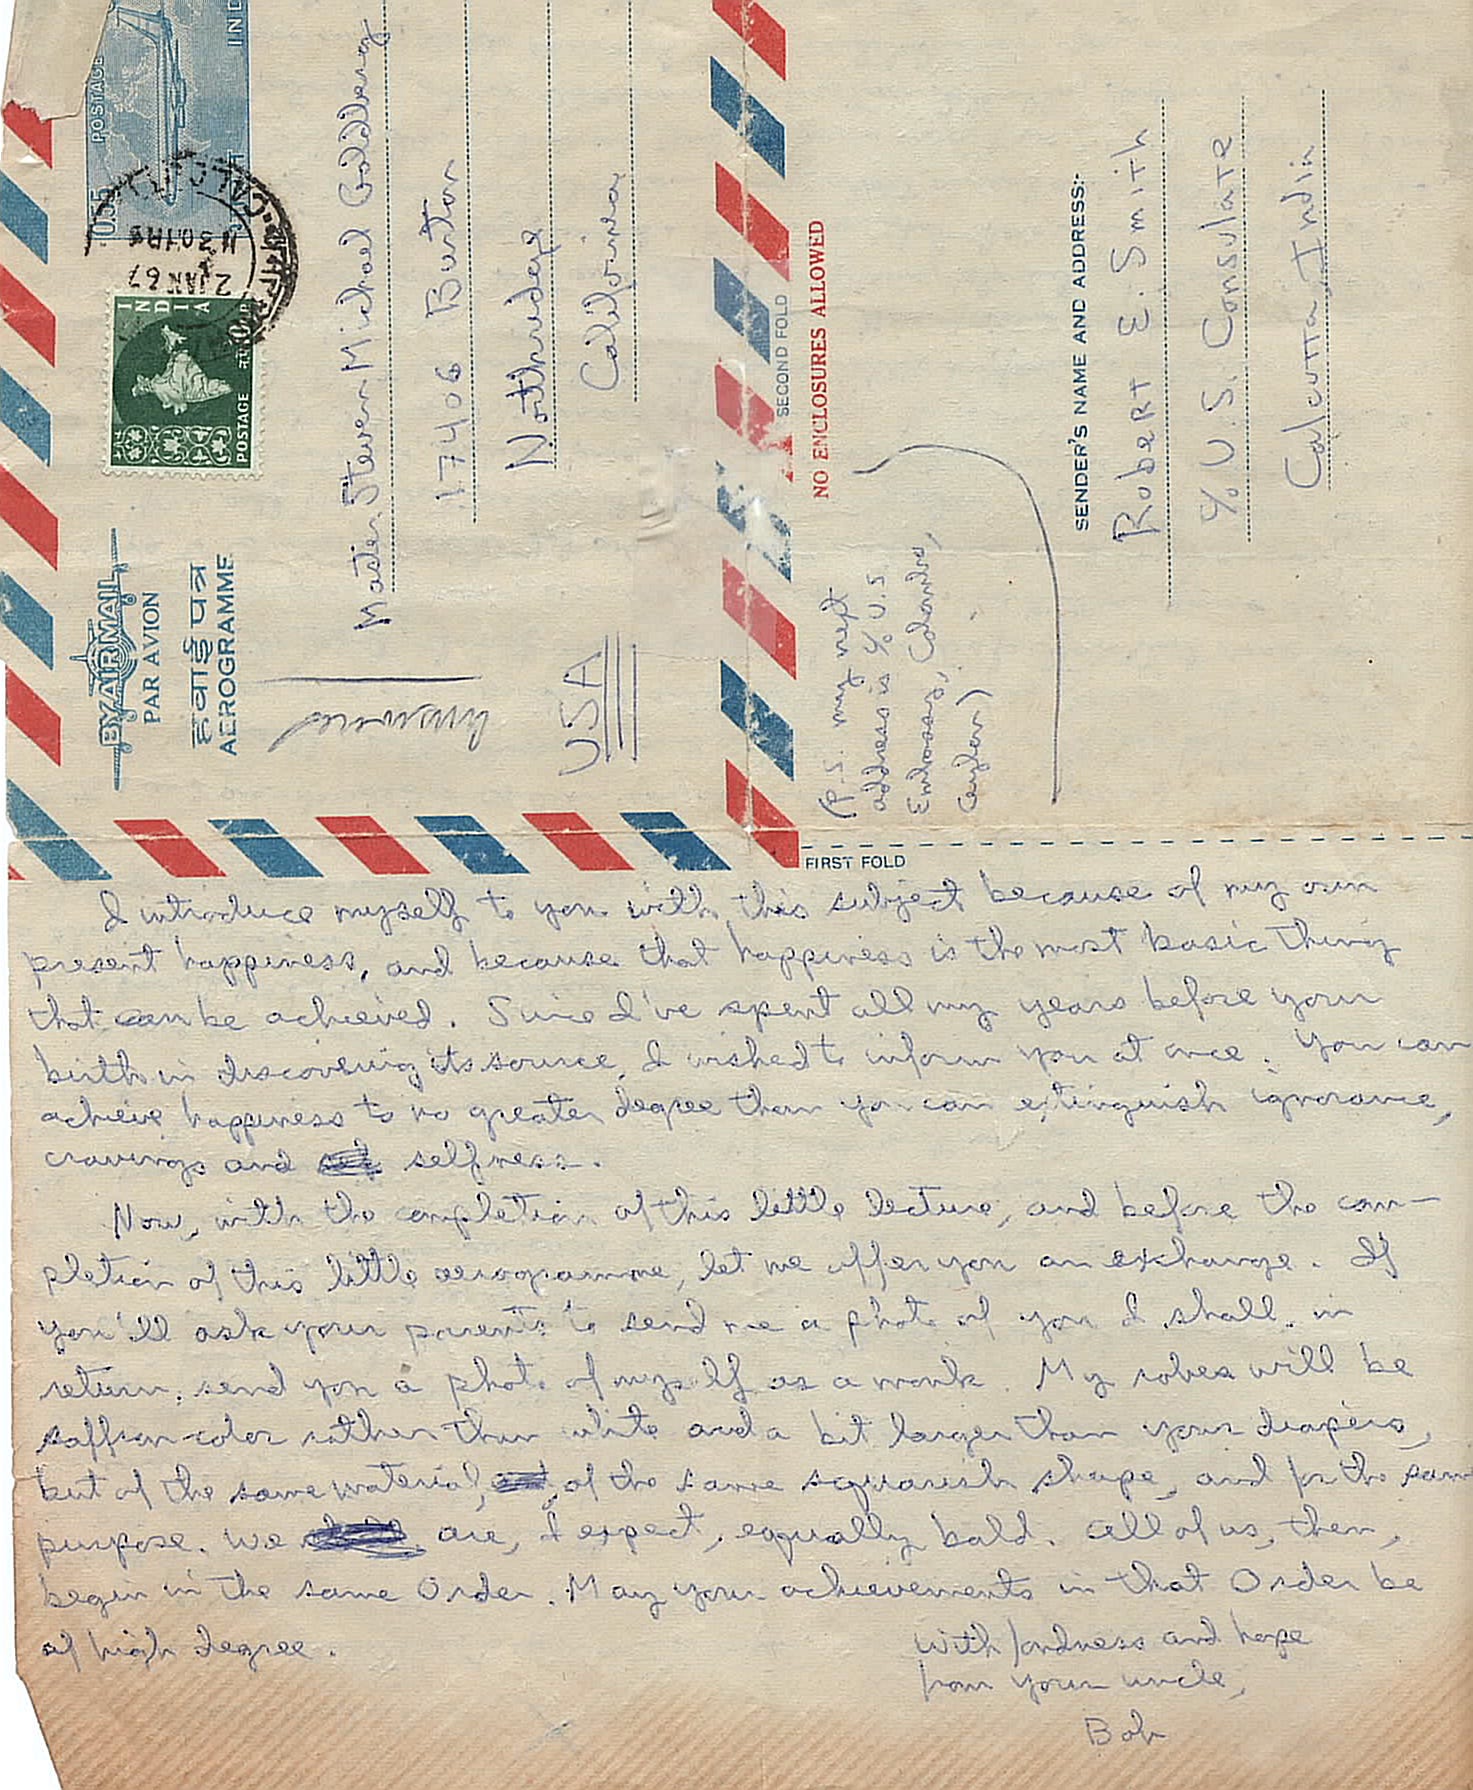 POSTAGE
IND
0.55
CALCUTTA
1130HRS
2 JAN 67
INDIA
POSTAGE
BY AIR MAIL
PAR AVION
हवाई पत्र
AEROGRAMME
Master Steven Michael Goldberg
17406 Burton
Northridge
California
USA
answered
SECOND FOLD
NO ENCLOSURES ALLOWED
(P.S. my next
address is % U.S.
Embassy, Colombo,
Ceylon)
SENDER'S NAME AND ADDRESS:-
Robert E. Smith
% U.S. Consulate
Calcutta, India
FIRST FOLD
I introduce myself to you with this subject because of my own
present happiness, and because that happiness is the most basic thing
that can be achieved. Since I've spent all my years before your
birth in discovering its source, I wished to inform you at once. You can
achieve happiness to no greater degree than you can extinguish ignorance,
cravings and selfness.
Now, with the completion of this little lecture, and before the com-
pletion of this little aerogramme, let me offer you an exchange. If
you'll ask your parents to send me a photo of you I shall, in
return, send you a photo of myself as a monk. My robes will be
saffron-color rather than white and a bit larger than your diapers,
but of the same material, of the same squarish shape, and for the same
purpose. We are, I expect, equally bald. All of us, then,
begin in the same Order. May your achievements in that Order be
of high degree.
with fondness and hope
from your uncle,
Bob